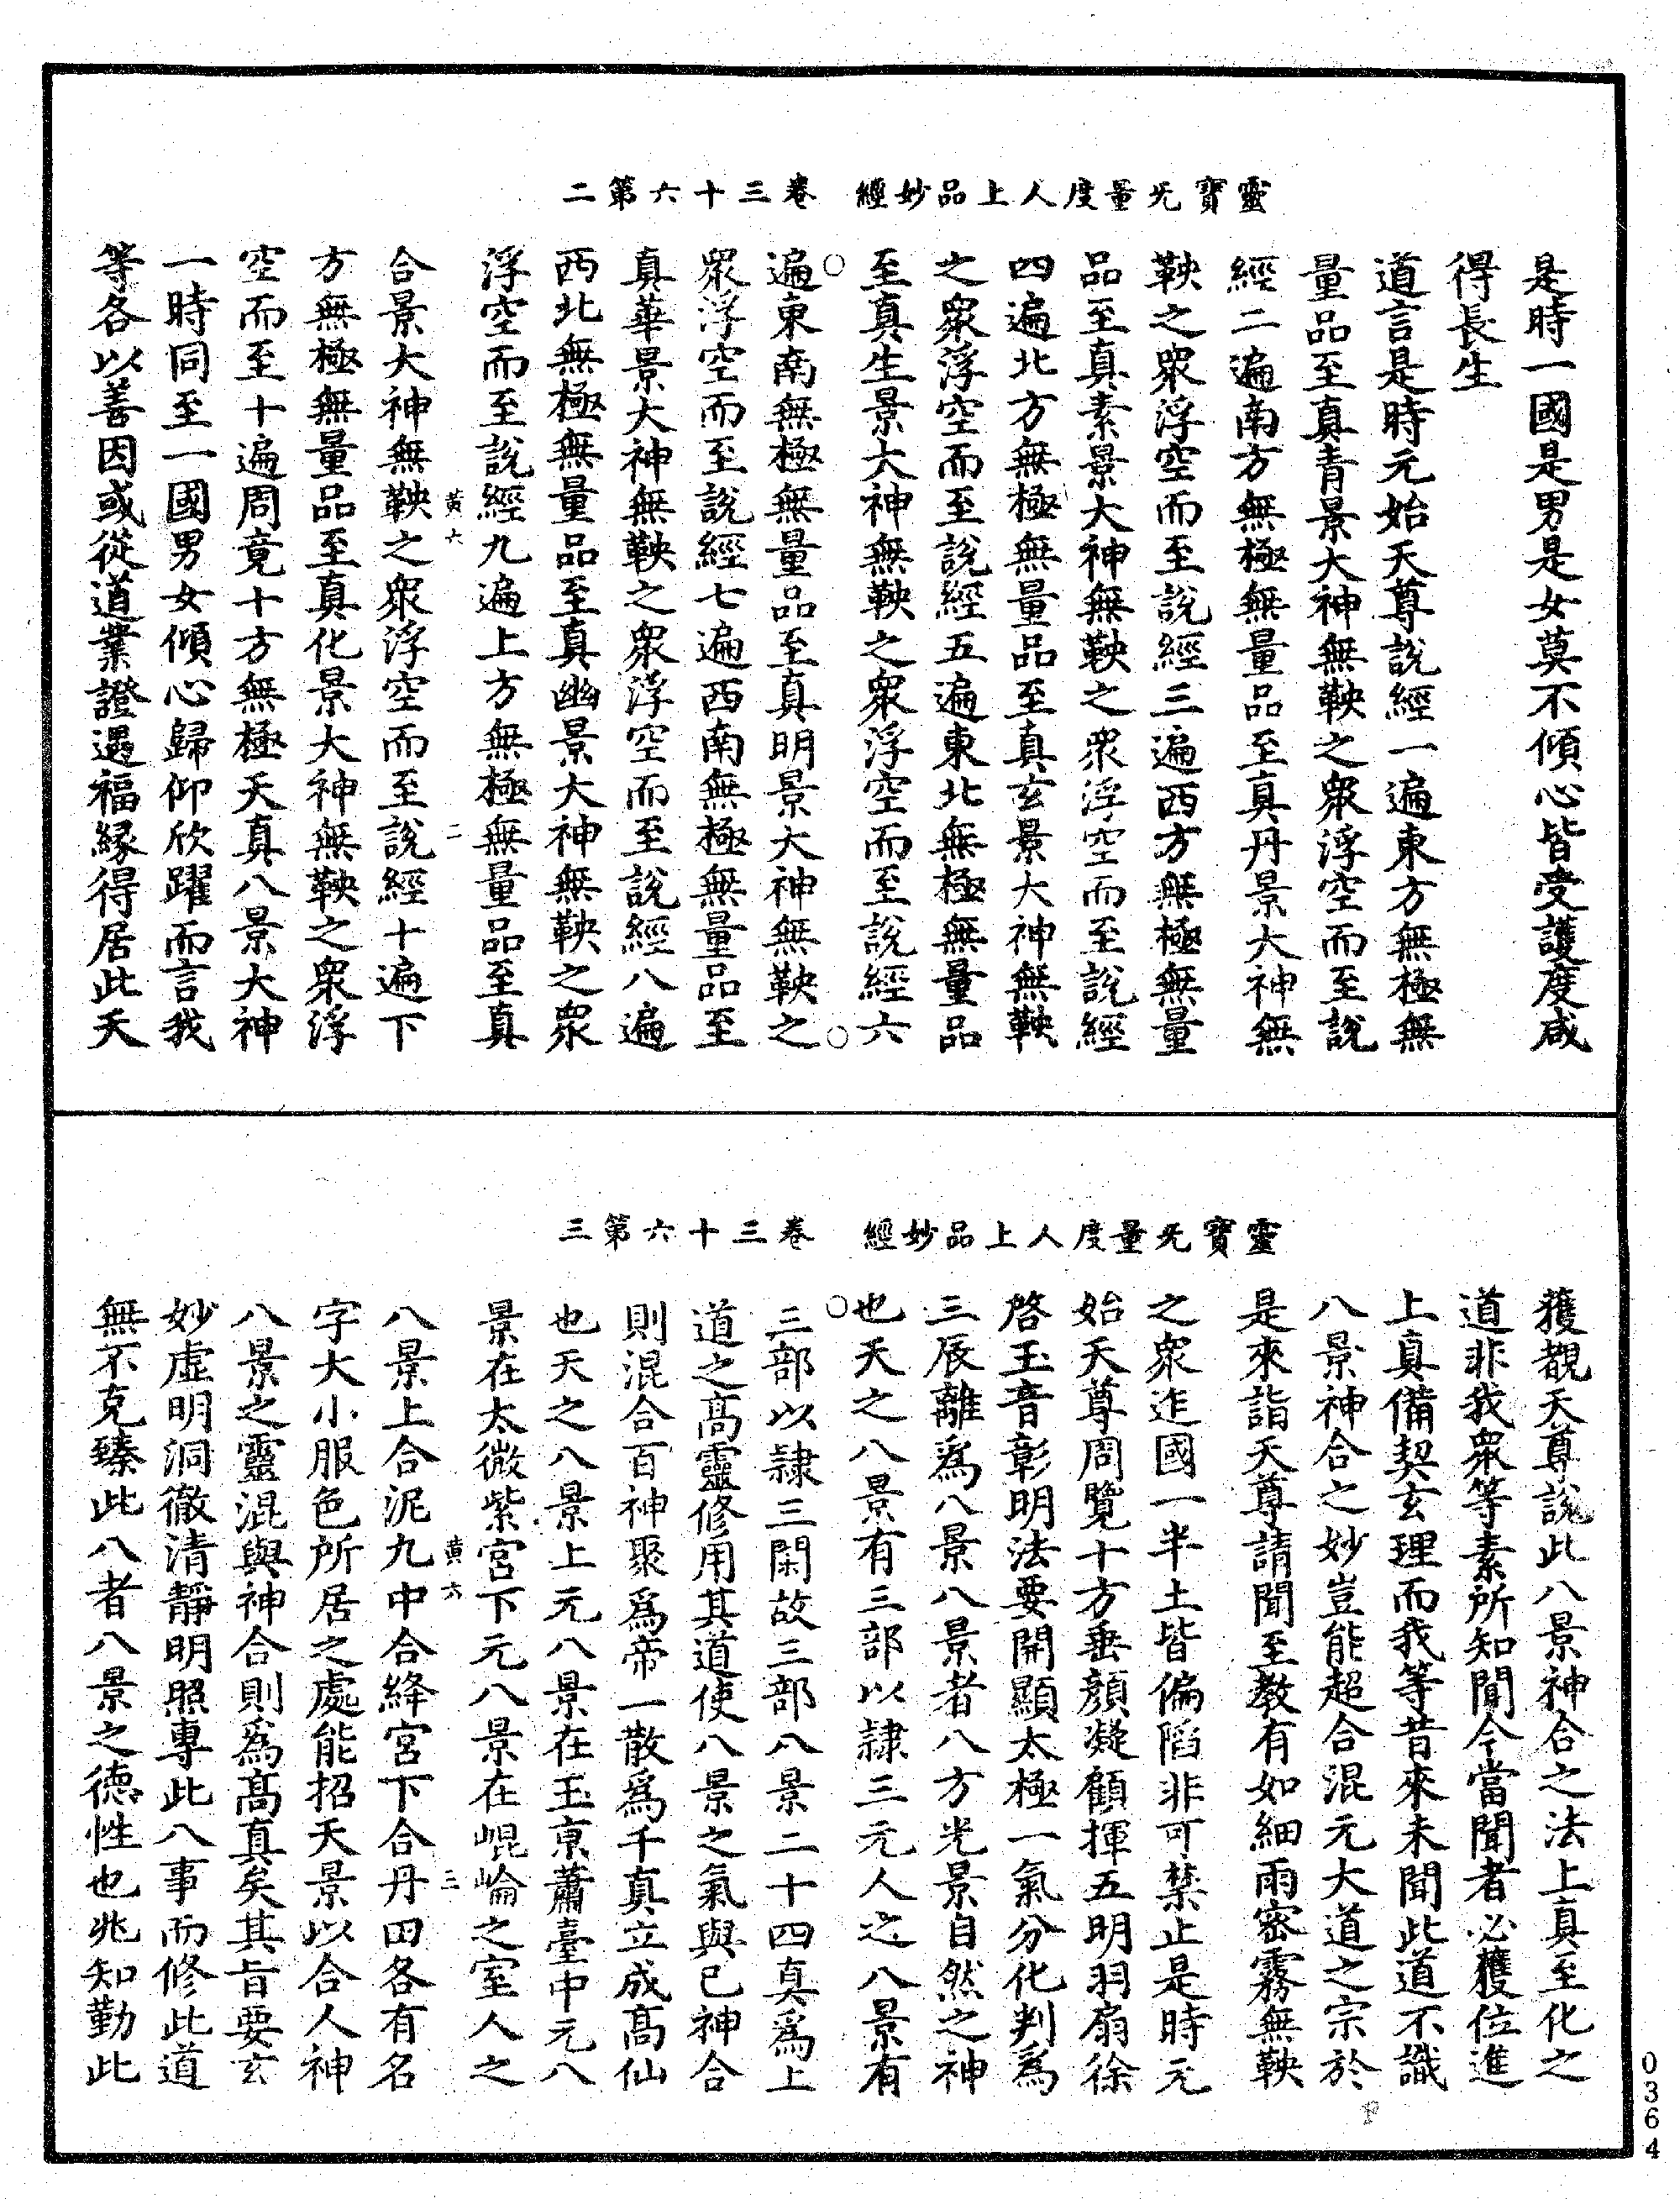 靈寶旡量度人上品妙經 卷三十六第二
是時一國是男是女莫不傾心皆受護度咸
得長生
道言是時元始天尊說經一遍東方無極無
量品至真青景大神無鞅之衆浮空而至說
經二遍南方無極無量品至真丹景大神無
鞅之衆浮空而至說經三遍西方無極無量
品至真素景大神無鞅之衆浮空而至說經
四遍北方無極無量品至真玄景大神無鞅
之衆浮空而至說經五遍東北無極無量品
至真生景大神無鞅之衆浮空而至說經六
遍東南無極無量品至真明景大神無鞅之
衆浮空而至說經七遍西南無極無量品至
真華景大神無鞅之衆浮空而至說經八遍
西北無極無量品至真幽景大神無鞅之衆
浮空而至說經九遍上方無極無量品至真
黃六 二
合景大神無鞅之衆浮空而至說經十遍下
方無極無量品至真化景大神無鞅之衆浮
空而至十遍周竟十方無極天真八景大神
一時同至一國男女傾心歸仰欣躍而言我
等各以善因或從道業證遇福緣得居此天
靈寶旡量度人上品妙經 卷三十六第三
獲覩天尊說此八景神合之法上真至化之
道非我衆等素所知聞今當聞者必獲位進
上真備契玄理而我等昔來未聞此道不識
八景神合之妙豈能超合混元大道之宗於
是來詣天尊請聞至教有如細雨密霧無鞅
之衆迮國一半土皆偏陷非可禁止是時元
始天尊周覽十方垂顏凝顧揮五明羽扇徐
啓玉音彰明法要開顯太極一氣分化判爲
三辰離爲八景八景者八方光景自然之神
也天之八景有三部以隷三元人之八景有
三部以隷三關故三部八景二十四真爲上
道之高靈修用其道使八景之氣與己神合
則混合百神聚爲帝一散爲千真立成高仙
也天之八景上元八景在玉京蕭臺中元八
景在太微紫宮下元八景在崐崘之室人之
黃六 三
八景上合泥九中合絳宮下合丹田各有名
字大小服色所居之處能招天景以合人神
八景之靈混與神合則爲高真矣其旨要玄
妙虛明洞徹清靜明照專此八事而修此道
無不克臻此八者八景之德性也兆知勤此
0364